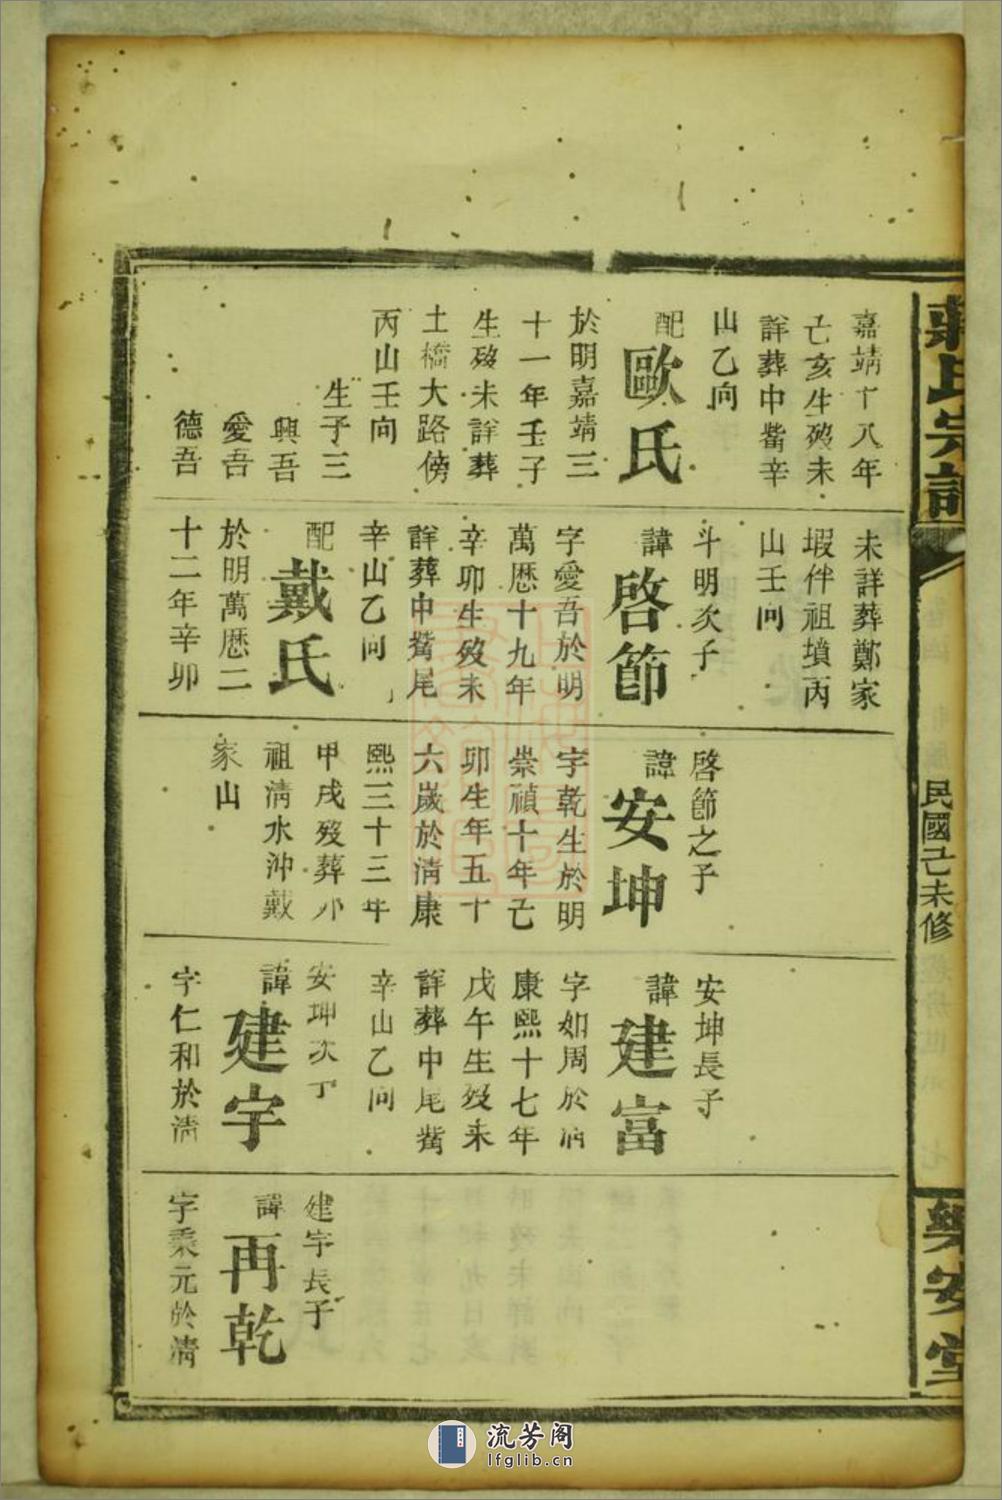 嘉靖十八年
亡亥生歿未
詳葬中觜辛
山乙向
配
歐氏
於明嘉靖三
十一年壬子
生歿未詳葬
土橋大路傍
丙山壬向
生子三
興吾
愛吾
德吾
未詳葬鄭家
塅伴祖墳丙
山壬向
斗明次子
諱
啓節
字愛吾於明
萬歷十九年
辛卯生歿未
詳葬中觜尾
辛山乙向
配
戴氏
於明萬歷二
十二年辛卯
啓節之子
諱
安坤
字乾生於明
崇禎十年亡
卯生年五十
六歲於淸康
熙三十三年
甲戌歿葬卯
祖淸水沖戴
家山
安坤長子
諱
建富
字如周於淸
康熙十七年
戊午生歿未
詳葬中尾觜
辛山乙向
安坤次丁
諱
建宇
字仁和於淸
建宇長子
諱
再乾
字乘元於淸
蔣氏宗譜
民國己未修
七
樂安堂
流芳阁
lfglib.cn